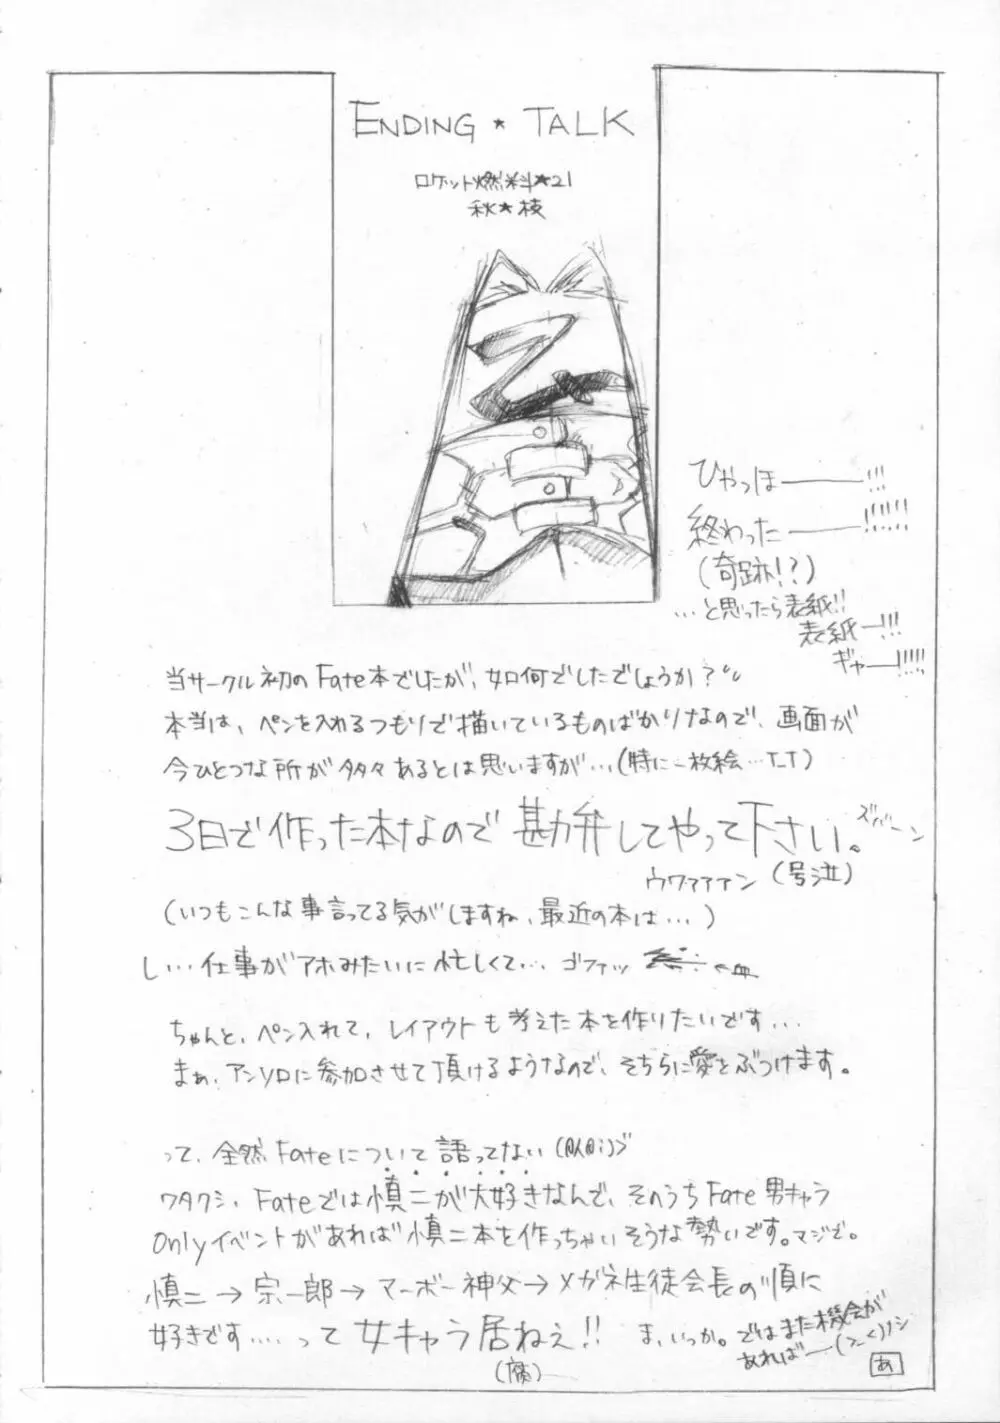 ENDING★TALK
ロケット燃料★21
秋★枝
ひやっほ———!!!
終わった———!!!!!
(奇跡!?)
…と思ったら表紙!!
表紙—!!!
ギャ——!!!!!
当サークル初のFate本でしたが、如何でしたでしょうか?
本当は、ペンを入れるつもりで描いているものばかりなので、画面が
今ひとつな所が多々あるとは思いますが…(特に一枚絵…T_T)
3日で作った本なので勘弁してやって下さい。ズバーン
ウワァァァン(号泣)
(いつもこんな事言ってる気がしますね、最近の本は…)
し…仕事がアホみたいに忙しくて…ゴファッ ←血
ちゃんと、ペン入れて、レイアウトも考えた本を作りたいです…
まぁ、アンソロに参加させて頂けるようなので、そちらに愛をぶつけます。
って、全然Fateについて語ってない
ワタクシ、Fateでは慎二が大好きなんで、そのうちFate男キャラ
Onlyイベントがあれば慎二本を作っちゃいそうな勢いです。マジで。
慎二→宗一郎→マーボー神父→メガネ生徒会長の順に
好きです….って女キャラ居ねぇ!! ま、いっか。ではまた機会が
あればー(>_<)ノシ
(腐)
あ